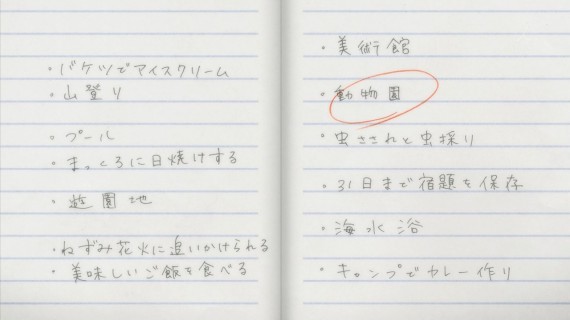 ・バケツでアイスクリーム
・山登り
・プール
・まっくろに日焼けする
・遊園地
・ねずみ花火に追いかけられる
・美味しいご飯を食べる
・美術館
・動物園
・虫さされと虫採り
・31日まで宿題を保存
・海水浴
・キャンプでカレー作り